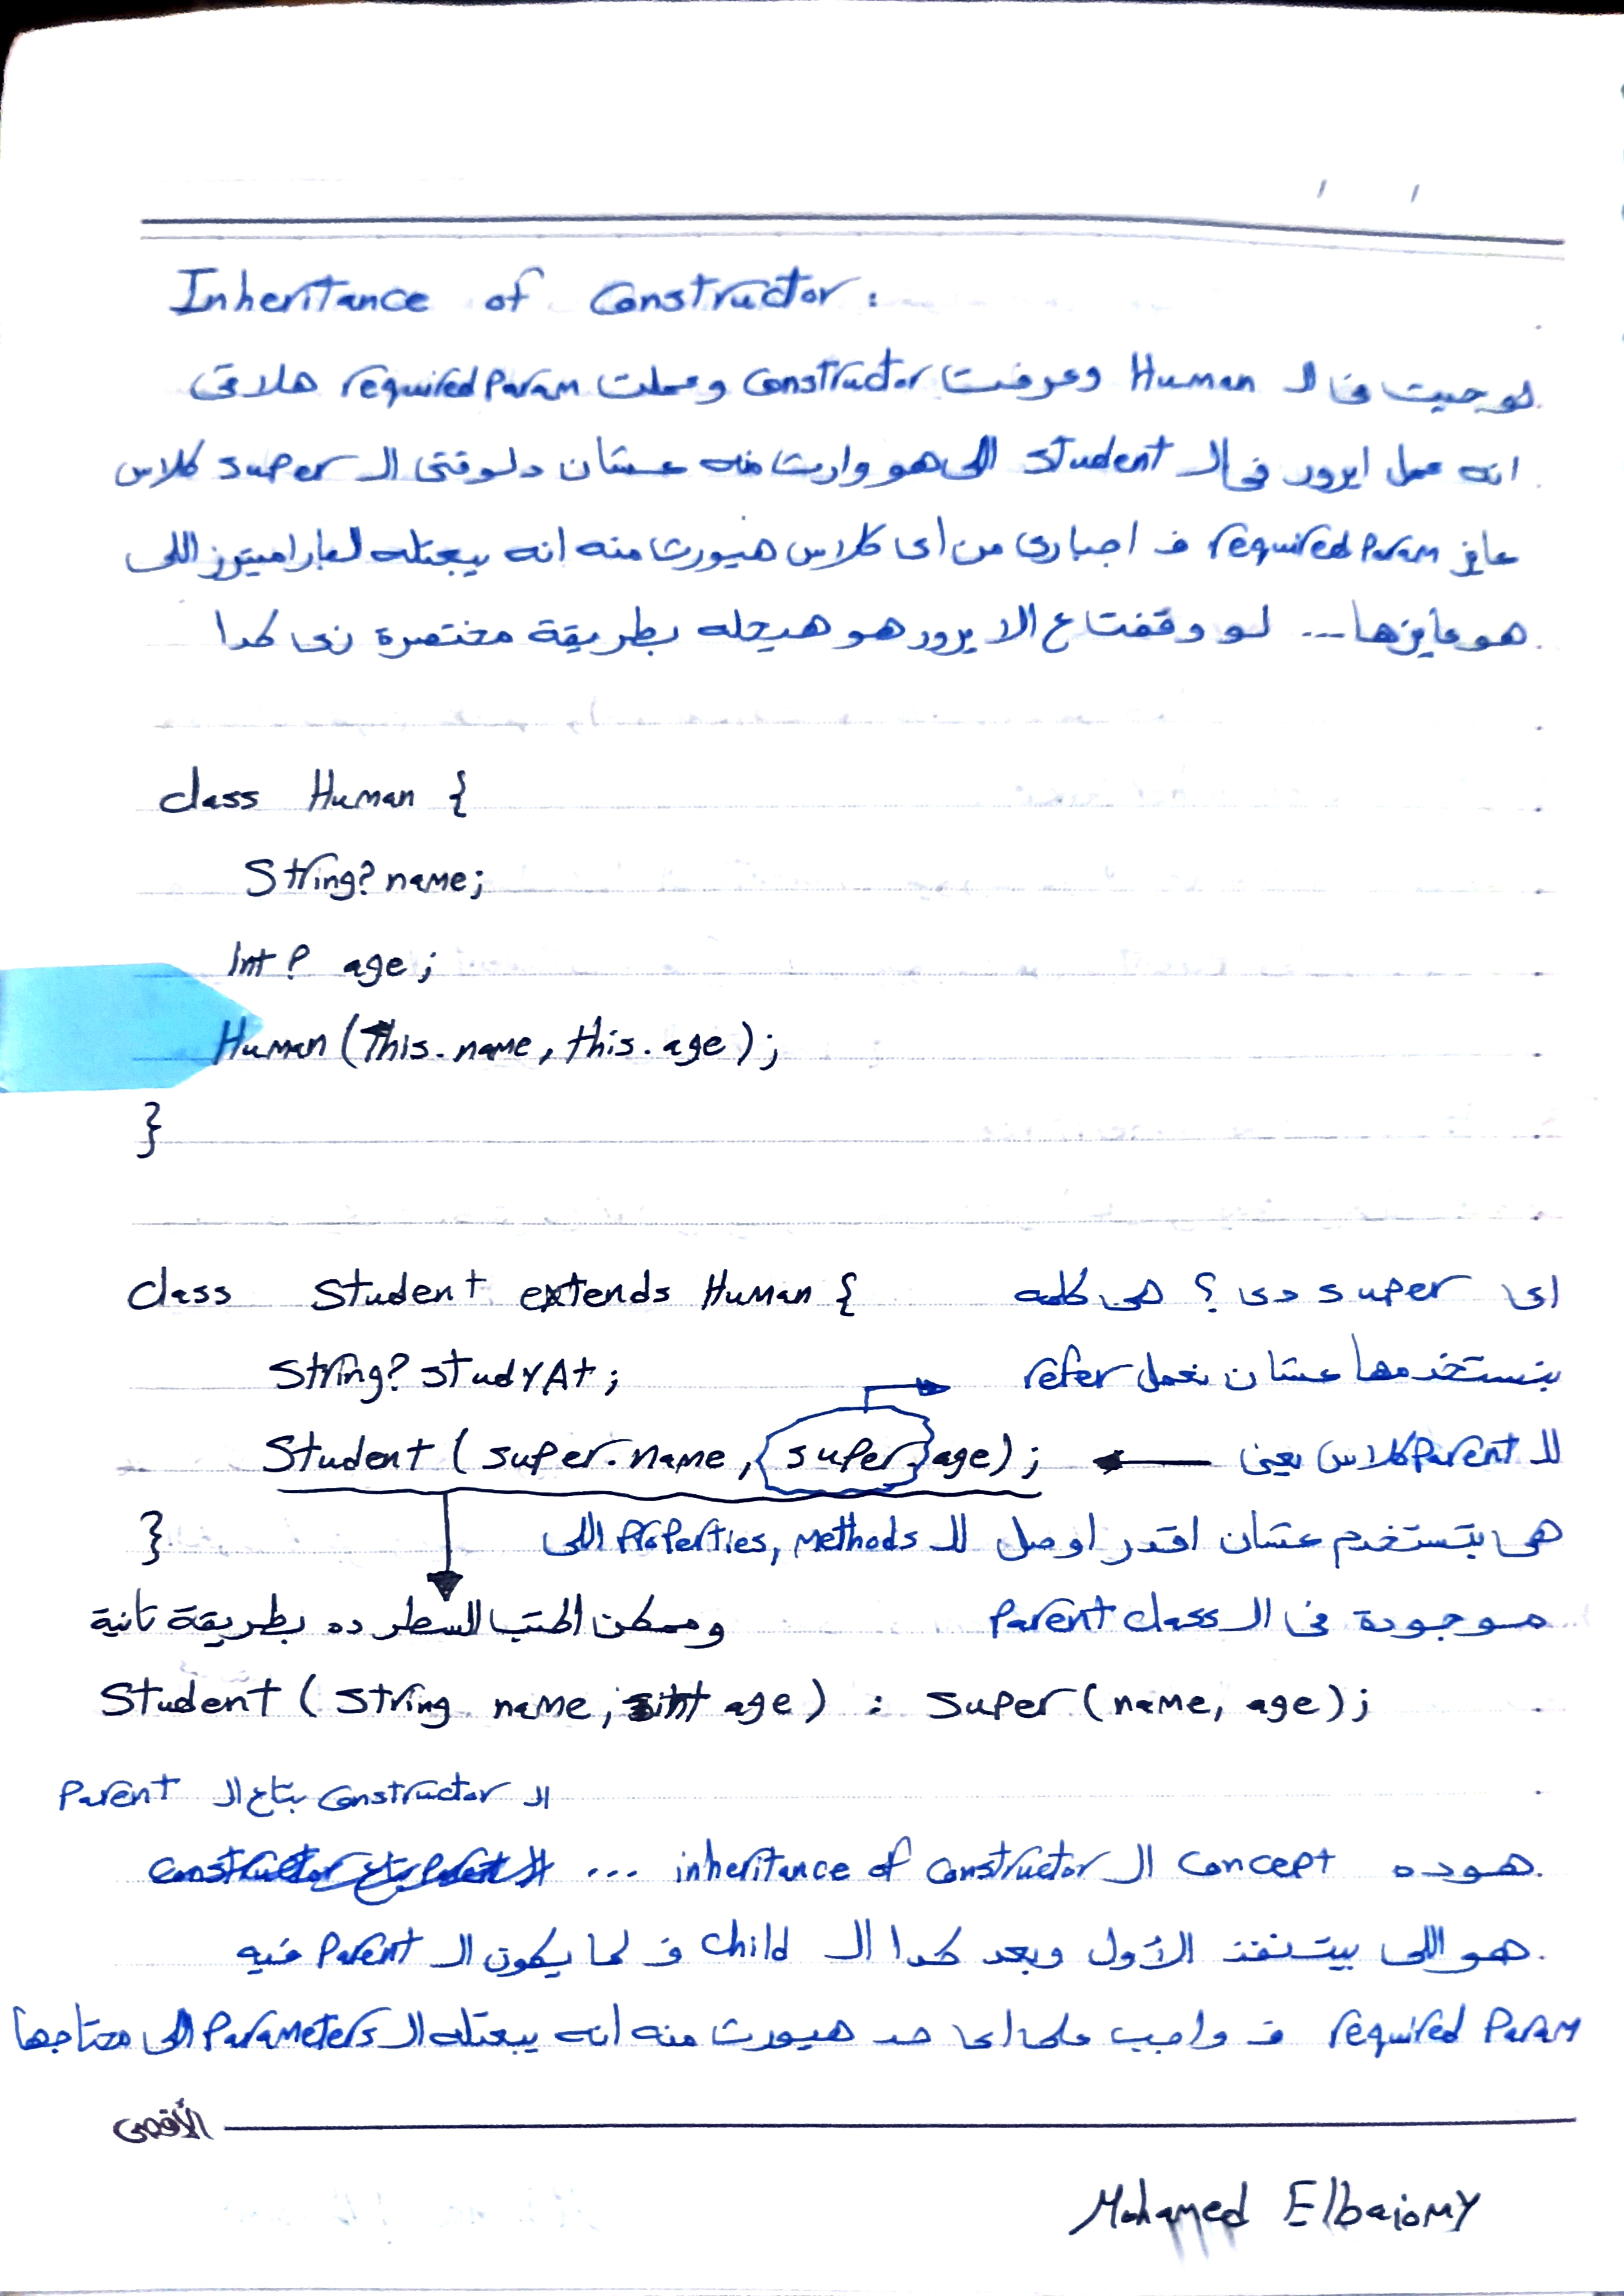 Inheritance of Constructor :
لو جيت فا ال Human وعرفت Constructor وعملت required Param هلاقى
انه عمل ايرور فى ال student اللى هو وارث منه عشان دلوقتى ال super كلاس
عايز required Param ف اجبارى من اى كلاس هيورث منه انه يبعتله لبارامیترز اللى
هو عايزها ... لو وقفت ع الايرور هو هيحله بطريقة مختصرة زى كدا
class Human {
String? name;
Int? age;
Human (This.name, this.age);
}
class Student extends Human {
String? studyAt;
Student ( super.name, super.age);
}
اى super دى ؟ هى كلمه
بنستخدمها عشان نعمل refer
لل Parent كلاس يعنى
هى بتستخدم عشان اقدر اوصل لل Properties, Methods اللى
موجودة فى ال Parent class
وممكن اكتب السطر ده بطريقة تانية
Student ( String name, int age) : Super (name, age);
ال Constructor بتاع ال Parent
هو ده concept ال inheritance of Constructor ...
هو اللى بيتنفذ الأول وبعد كدا ال child ف لما يكون ال Parent فيه
required Param ف واجب على اى حد هيورث منه انه يبعتله ال Parameters اللى محتاجها
الأقصى
Mohamed Elbaiomy